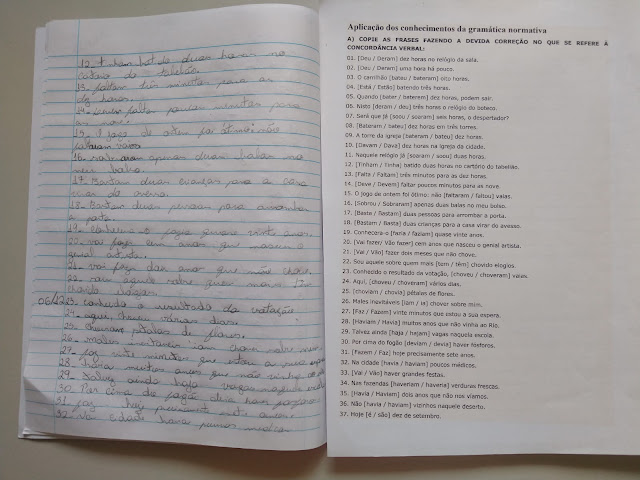 12. duas horas no
do tabelião.
13. faltam três minutos para as
dez horas.
14. faltar poucos minutos para
as nove.
15. O jogo de ontem foi ótimo: não
faltaram vaias
16. apenas duas balas no
meu bolso.
17. Bastam duas crianças para a casa
do avesso.
18. Bastam duas pessoas para arrombar
a porta.
19. o quase vinte anos.
20. vai fazer cem anos que nasceu o
genial artista.
21. vai fazer dois meses que não chove.
22. sou aquele sobre quem mais tem
chovido elogios.
06/42 23. o resultado da votação
24. aqui, choveu vários dias.
25. pétalas de flores.
26. males iam sobre mim
27. faz vinte minutos que estou a sua espera
28. havia muitos anos que não vinha ao
29. Talvez ainda haja vagas
30. Por cima do fogão devia haver
31. faz hoje precisamente sete anos.
32. Na cidade havia poucos médicos.
Aplicação dos conhecimentos da gramática normativa
A) COPIE AS FRASES FAZENDO A DEVIDA CORREÇÃO NO QUE SE REFERE À
CONCORDÂNCIA VERBAL:
01. [Deu / Deram] dez horas no relógio da sala.
02. [Deu / Deram] uma hora há pouco.
03. O carrilhão [bateu / bateram] oito horas.
04. [Está / Estão] batendo três horas.
05. Quando [bater / baterem] dez horas, podem sair.
06. Nisto [deram / deu] três horas o relógio do boteco.
07. Será que já [soou / soaram] seis horas, o despertador?
08. [Bateram / bateu] dez horas em três torres.
09. A torre da igreja [bateram / bateu] dez horas.
10. [Davam / Dava] dez horas na igreja da cidade.
11. Naquele relógio já [soaram / soou] duas horas.
12. [Tinham / Tinha] batido duas horas no cartório do tabelião.
13. [Falta / Faltam] três minutos para as dez horas.
14. [Deve / Devem] faltar poucos minutos para as nove.
15. O jogo de ontem foi ótimo: não [faltaram / faltou] vaias.
16. [Sobrou / Sobraram] apenas duas balas no meu bolso.
17. [Basta / Bastam] duas pessoas para arrombar a porta.
18. [Bastam / Basta] duas crianças para a casa virar do avesso.
19. Conhecera-o [fazia / faziam] quase vinte anos.
20. [Vai fazer/ Vão fazer] cem anos que nasceu o genial artista.
21. [Vai / Vão] fazer dois meses que não chove.
22. Sou aquele sobre quem mais [tem / têm] chovido elogios.
23. Conhecido o resultado da votação, [choveu / choveram] vaias.
24. Aqui, [choveu / choveram] vários dias.
25. [choviam / chovia] pétalas de flores.
26. Males inevitáveis [iam / ia] chover sobre mim.
27. [Faz / Fazem] vinte minutos que estou a sua espera.
28. [Haviam / Havia] muitos anos que não vinha ao Rio.
29. Talvez ainda [haja / hajam] vagas naquela escola.
30. Por cima do fogão [deviam / devia] haver fósforos.
31. [Fazem / Faz] hoje precisamente sete anos.
32. Na cidade [havia / haviam] poucos médicos.
33. [Vai / Vão] haver grandes festas.
34. Nas fazendas [haveriam / haveria] verduras frescas.
35. [Havia / Haviam] dois anos que não nos víamos.
36. Não [havia / haviam] vizinhos naquele deserto.
37. Hoje [é / são] dez de setembro.